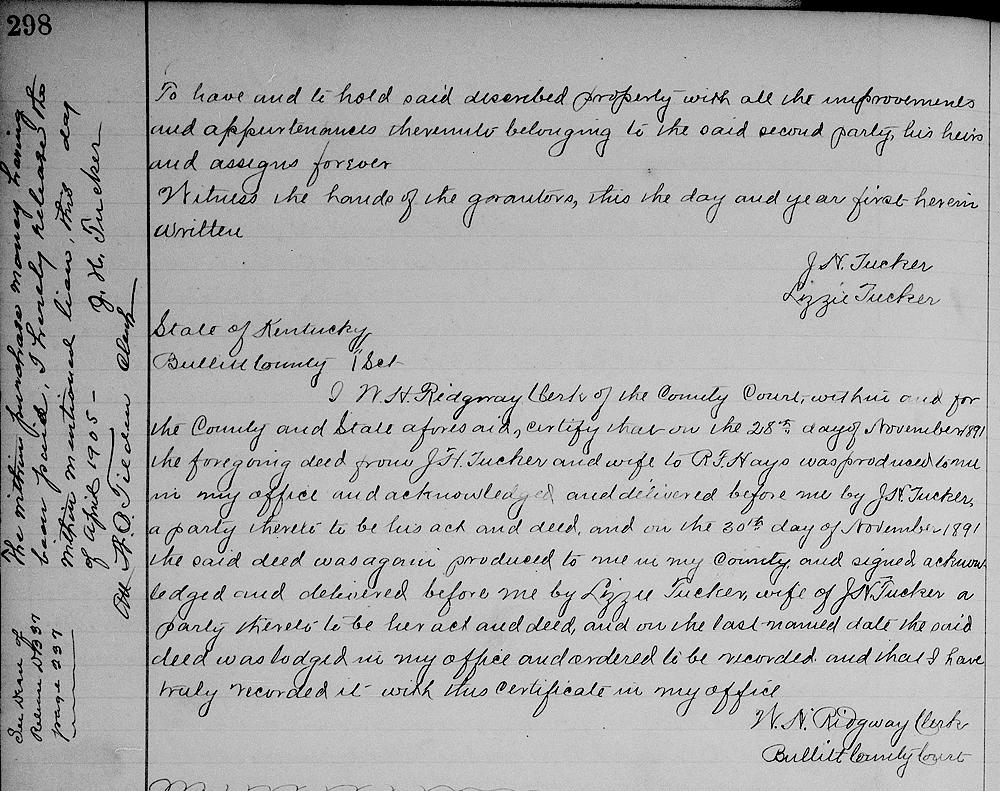 298
To have and to hold said described property with all the improvements
and appurtenances thereunto belonging to the said second party, his heirs
and assigns forever
Witness the hands of the grantors, this the day and year first herein
written
J. H. Tucker
Lizzie Tucker
State of Kentucky,
Bullitt County } Sct
I W. H. Ridgway Clerk of the County Court, within and for
the County and State aforesaid, certify that on the 28th day of November 1891
the foregoing deed from J. H. Tucker and wife to R. F. Hays was produced to me
in my office and acknowledged and delivered before me by J. H. Tucker,
a party thereto to be his act and deed, and on the 30th day of November 1891
the said deed was again produced to me in my County and signed acknow
ledged and delivered before me by Lizzie Tucker, wife of J. H. Tucker a
party thereto to be her act and deed, and on the last named date the said
deed was lodged in my office and ordered to be recorded and that I have
truly recorded it with this certificate in my office
W. H. Ridgway Clerk
Bullitt County Court
The within purchase money having
been paid, I hereby release the
within mentioned lien, this day
of April 1905 -
J. H. Tucker
Att Tilden Clerk
See Deed of
Release DB 37
page 237